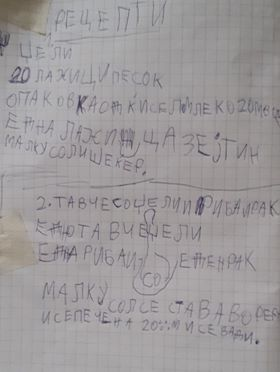 РЕЦЕПТИ
ЦЕЛИ
20 ЛАЖИЦИ ПЕСОК
ОПАКОВКА ОТ КИСЕЛ МЛЕКО
ЕТНА ЛАЖИЦА ЗЕЈТИН
МАЛКУ СОЛ И ШЕКЕР.
2. ТАВЧЕ СО ЦЕЛИ И РИБА И РАК
ЕТНО ТАВЧЕ ЦЕЛИ
ЕТНА РИБА И ЕТЕН РАК
СО
МАЛКУ СОЛ СЕ СТАВА ВО
И СЕ ПЕЧЕ НА 20 И СЕ ВАДИ.